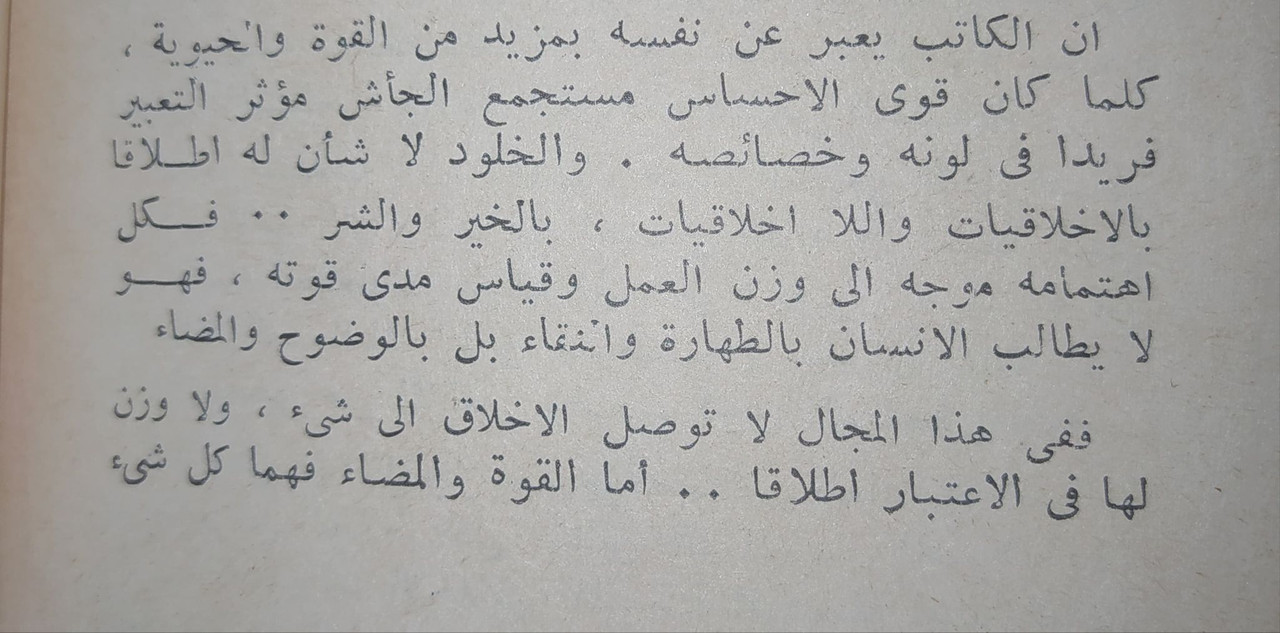 ان الكاتب يعبر عن نفسه بمزيد من القوة والحيوية ،
كلما كان قوى الاحساس مستجمع الجأش مؤثر التعبير
فريدا فى لونه وخصائصه . والخلود لا شأن له اطلاقا
بالاخلاقيات واللا اخلاقيات ، بالخير والشر .. فكل
اهتمامه موجه الى وزن العمل وقياس مدى قوته ، فهو
لا يطالب الانسان بالطهارة والنقاء بل بالوضوح والمضاء
ففى هذا المجال لا توصل الاخلاق الى شىء ، ولا وزن
لها فى الاعتبار اطلاقا .. أما القوة والمضاء فهما كل شىء